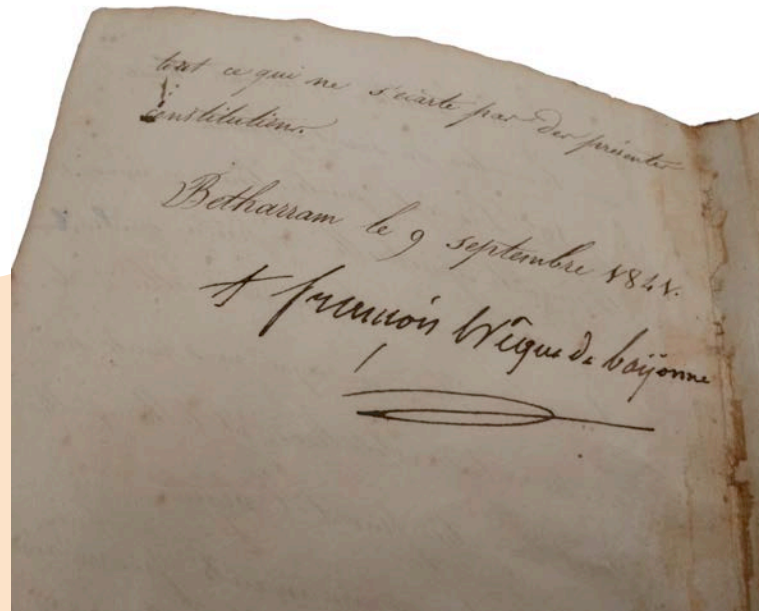 tout ce qui ne s'écarte pas des présentes
constitutions.
Betharram le 9 septembre 1841.
+ françois évêque de bayonne